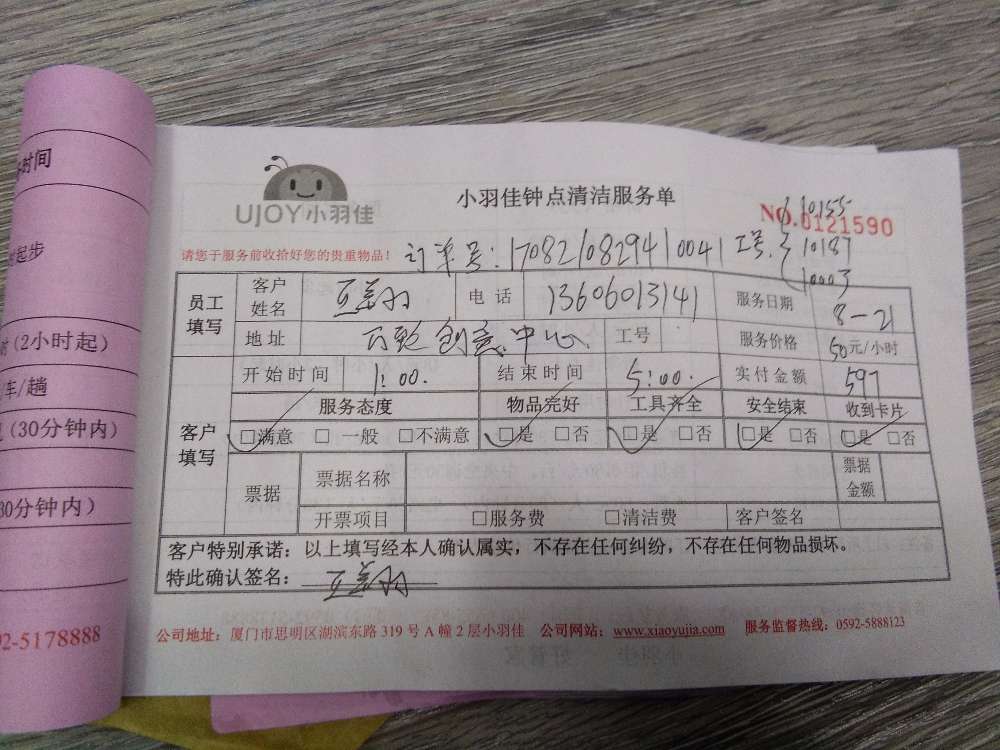 时间
起步
时(2小时起)
/车/趟
(30分钟内)
30分钟内)
92-5178888
UJOY小羽佳
小羽佳钟点清洁服务单
NO.0121590
请您于服务前收拾好您的贵重物品!
订单号:1708210829410041 工号:
10155
10187
10003
员工填写
客户姓名
电话 13606013141
服务日期 8-21
地址 创意中心 工号
服务价格 50元/小时
客户填写
开始时间 1:00. 结束时间 5:00. 实付金额 597
服务态度 物品完好 工具齐全 安全结束 收到卡片
□满意 □一般 □不满意 □是 □否 □是 □否 □是 □否 □是 □否
票据 票据名称 票据金额
开票项目 □服务费 □清洁费 客户签名
客户特别承诺:以上填写经本人确认属实,不存在任何纠纷,不存在任何物品损坏。
特此确认签名:
公司地址:厦门市思明区湖滨东路319号A幢2层小羽佳 公司网站:www.xiaoyujia.com 服务监督热线:0592-5888123